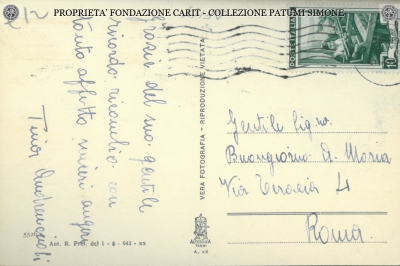 PROPRIETA' FONDAZIONE CARIT - COLLEZIONE PATUMI SIMONE
Grazie del suo gentile
ricordo ricambio con
tanto affetto sinceri auguri
Tina
VERA FOTOGRAFIA - RIPRODUZIONE VIETATA
Aut. R. Pref. del 1 - 8 - 942 - XX
ALTEROCCA
TERNI
Gentile Sig.na
Buongiorno A. Maria
Via 4
Roma